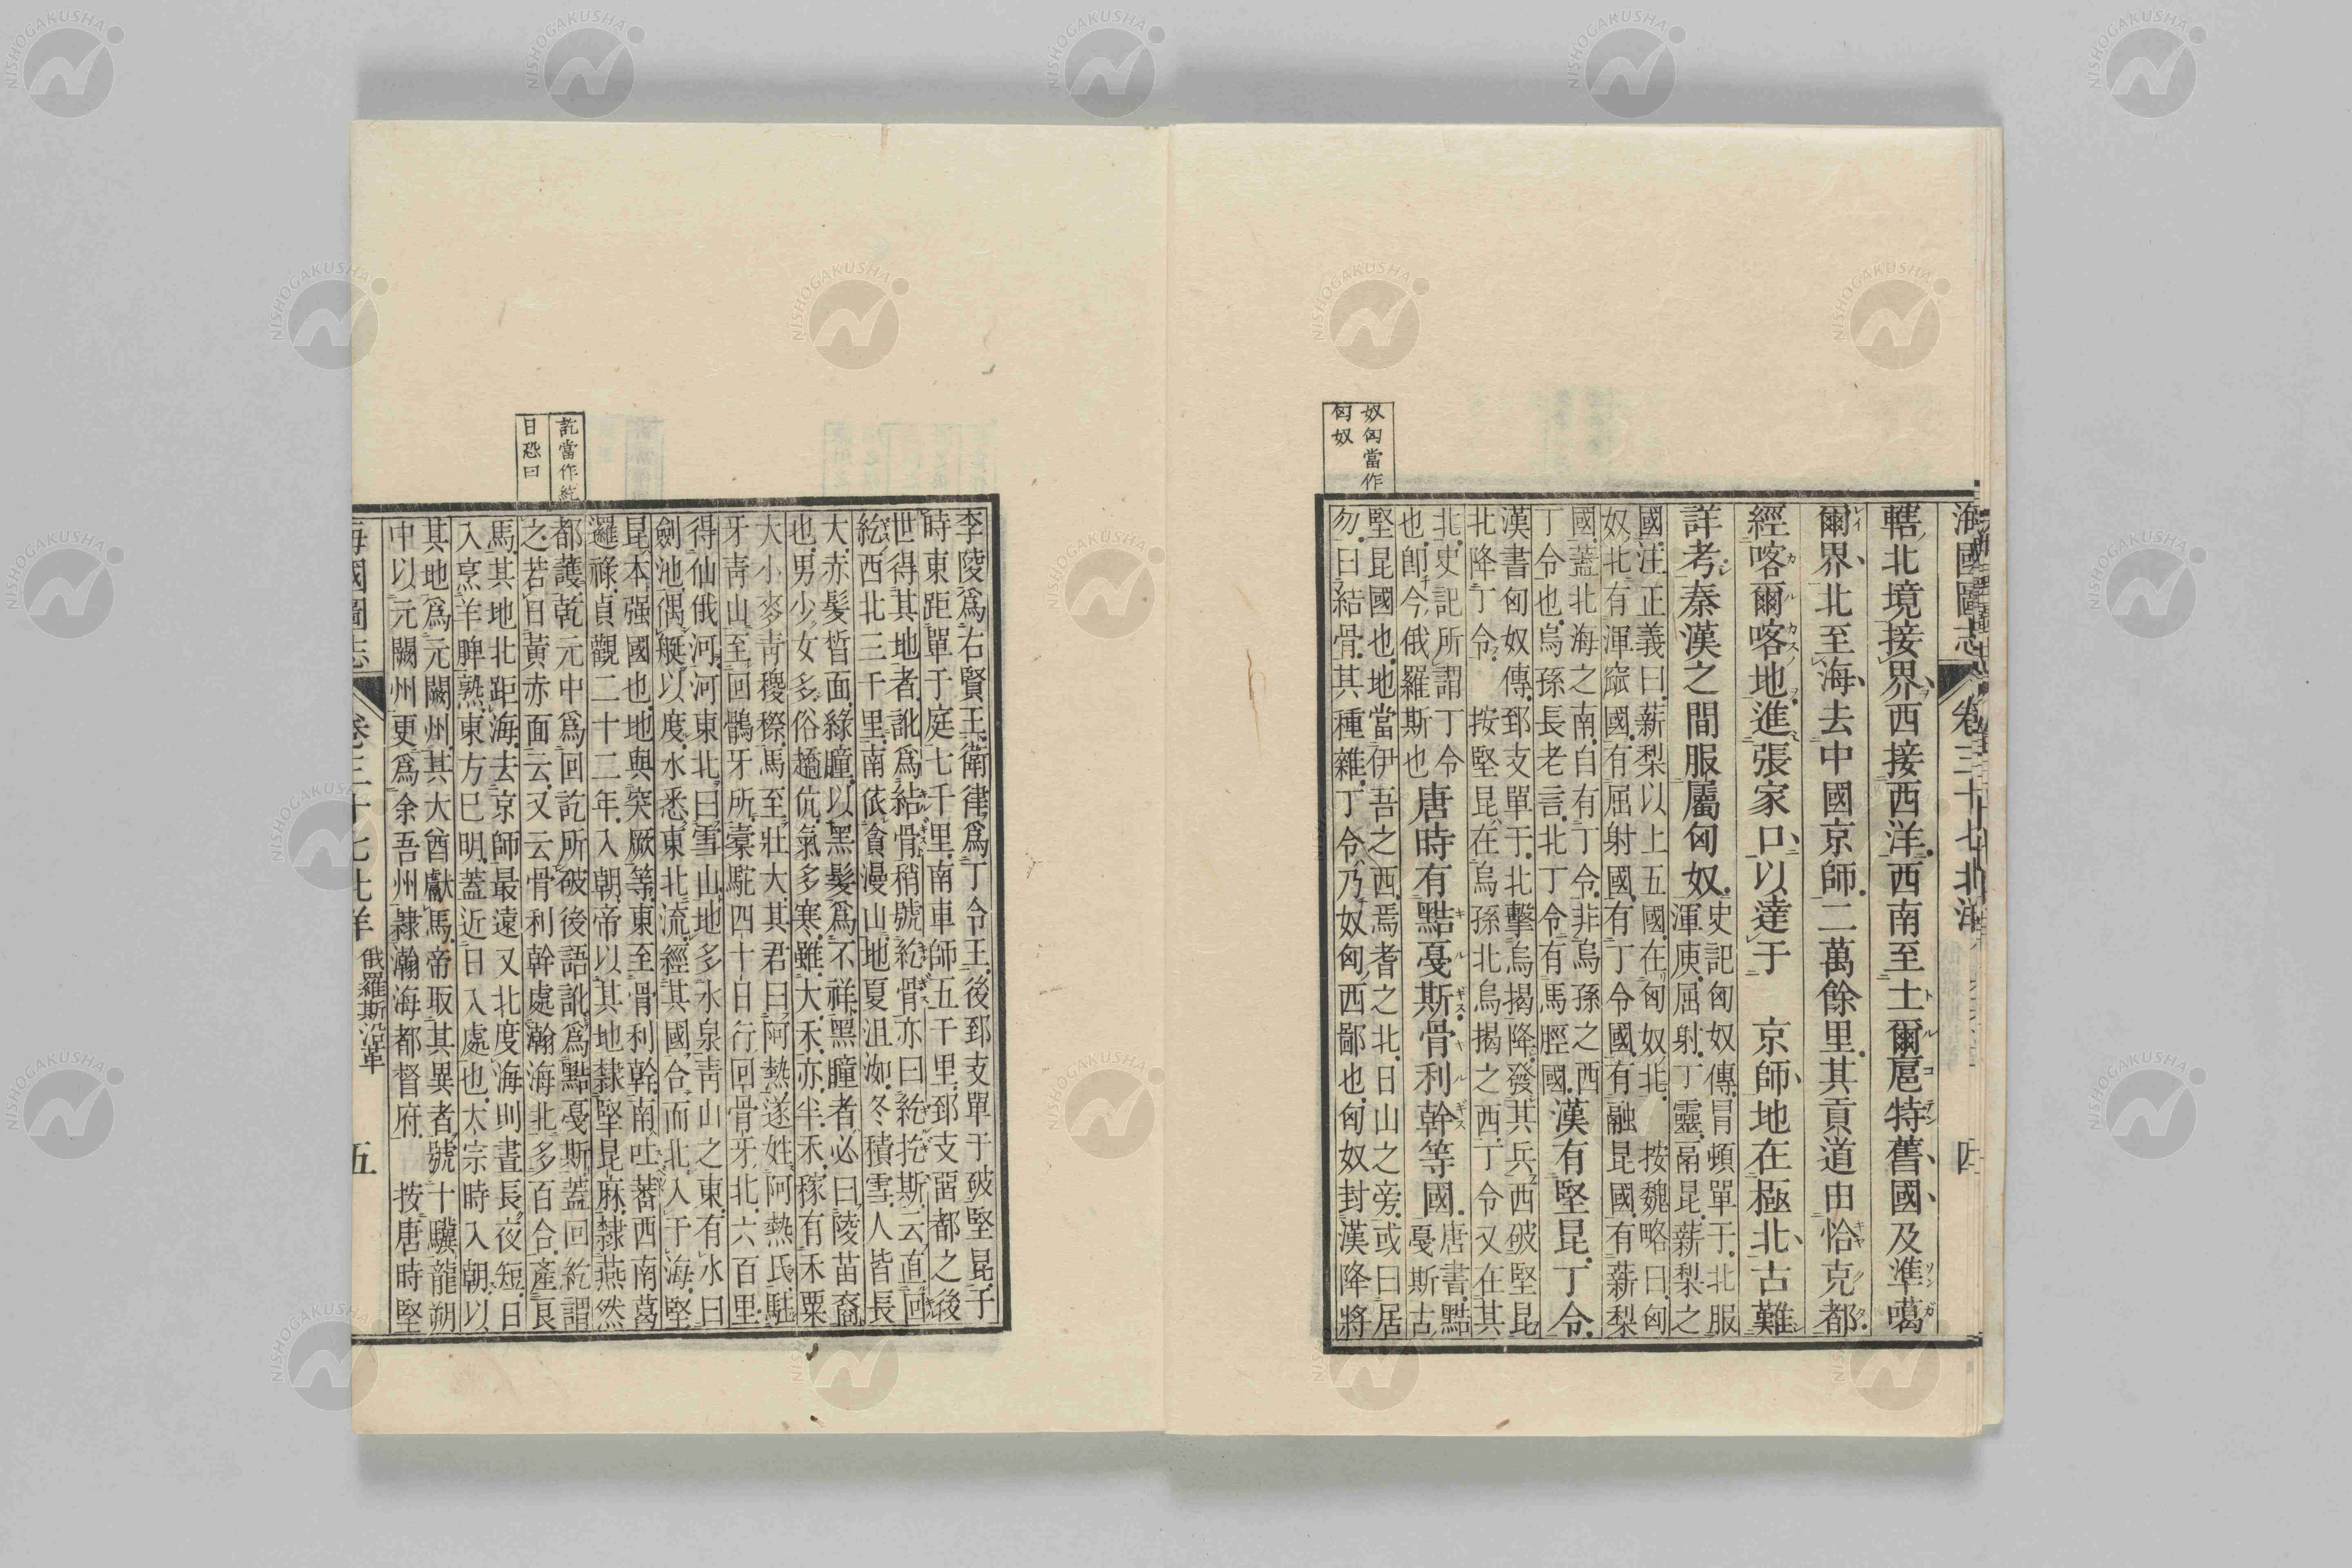 奴匈當作
匈奴
海國圖志
卷三十七北洋
四
轄北境接界西接西洋西南至土爾扈特舊國及準噶
爾界北至海去中國京師二萬餘里其貢道由恰克都
經喀爾喀地進張家口以達于 京師地在極北古難
詳考秦漢之間服屬匈奴
史記匈奴傳冒頓單于北服
渾庾屈射丁靈鬲昆薪梨之
國注正義曰薪梨以上五國在匈奴北 按魏略曰匈
奴北有渾窳國有屈射國有丁令國有融昆國有薪梨
國蓋北海之南自有丁令非烏孫之西
丁令也烏孫長老言北丁令有馬脛國
漢有堅昆丁令
漢書匈奴傳郅支單于北擊烏揭降發其兵西破堅昆
北降丁令 按堅昆在烏孫北烏揭之西丁令又在其
北史記所謂丁令
也卽今俄羅斯也
唐時有黠戛斯骨利幹等國
唐書黠
戛斯古
堅昆國也地當伊吾之西焉耆之北日山之旁或曰居
勿曰結骨其種雜丁令乃奴匈西鄙也匈奴封漢降將
訖當作紇
日恐曰
李陵爲右賢王衛律爲丁令王後郅支單于破堅昆于
時東距單于庭七千里南車師五千里郅支畱都之後
世得其地者訛爲結骨稍號紇骨亦曰紇扢斯云直回
紇西北三千里南依貪漫山地夏沮洳冬積雪人皆長
大赤髮皙面綠瞳以黑髮爲不祥黑瞳者必曰陵苗裔
也男少女多俗趫伉氣多寒雖大禾亦半禾稼有禾粟
大小麥青稷穄馬至壯大其君曰阿熱遂姓阿熱氏駐
牙青山至回鶻牙所橐駝四十日行回骨牙北六百里
得仙俄河河東北曰雪山地多水泉青山之東有水曰
劍池偶艇以度水悉東北流經其國合而北入于海堅
昆本强國也地與突厥等東至骨利幹南吐蕃西南葛
邏祿貞觀二十二年入朝帝以其地隸堅昆麻隸燕然
都護乾元中爲回訖所破後語訛爲黠戛斯蓋回紇謂
之若日黃赤面云又云骨利幹處瀚海北多百合產良
馬其地北距海去京師最遠又北度海則晝長夜短日
入烹羊脾熟東方已明蓋近日入處也太宗時入朝以
其地爲元闕州其大酋獻馬帝取其異者號十驥龍朔
中以元闕州更爲余吾州隸瀚海都督府 按唐時堅
海國圖志
卷三十七北洋
俄羅斯沿革
五
NISHOGAKUSHA